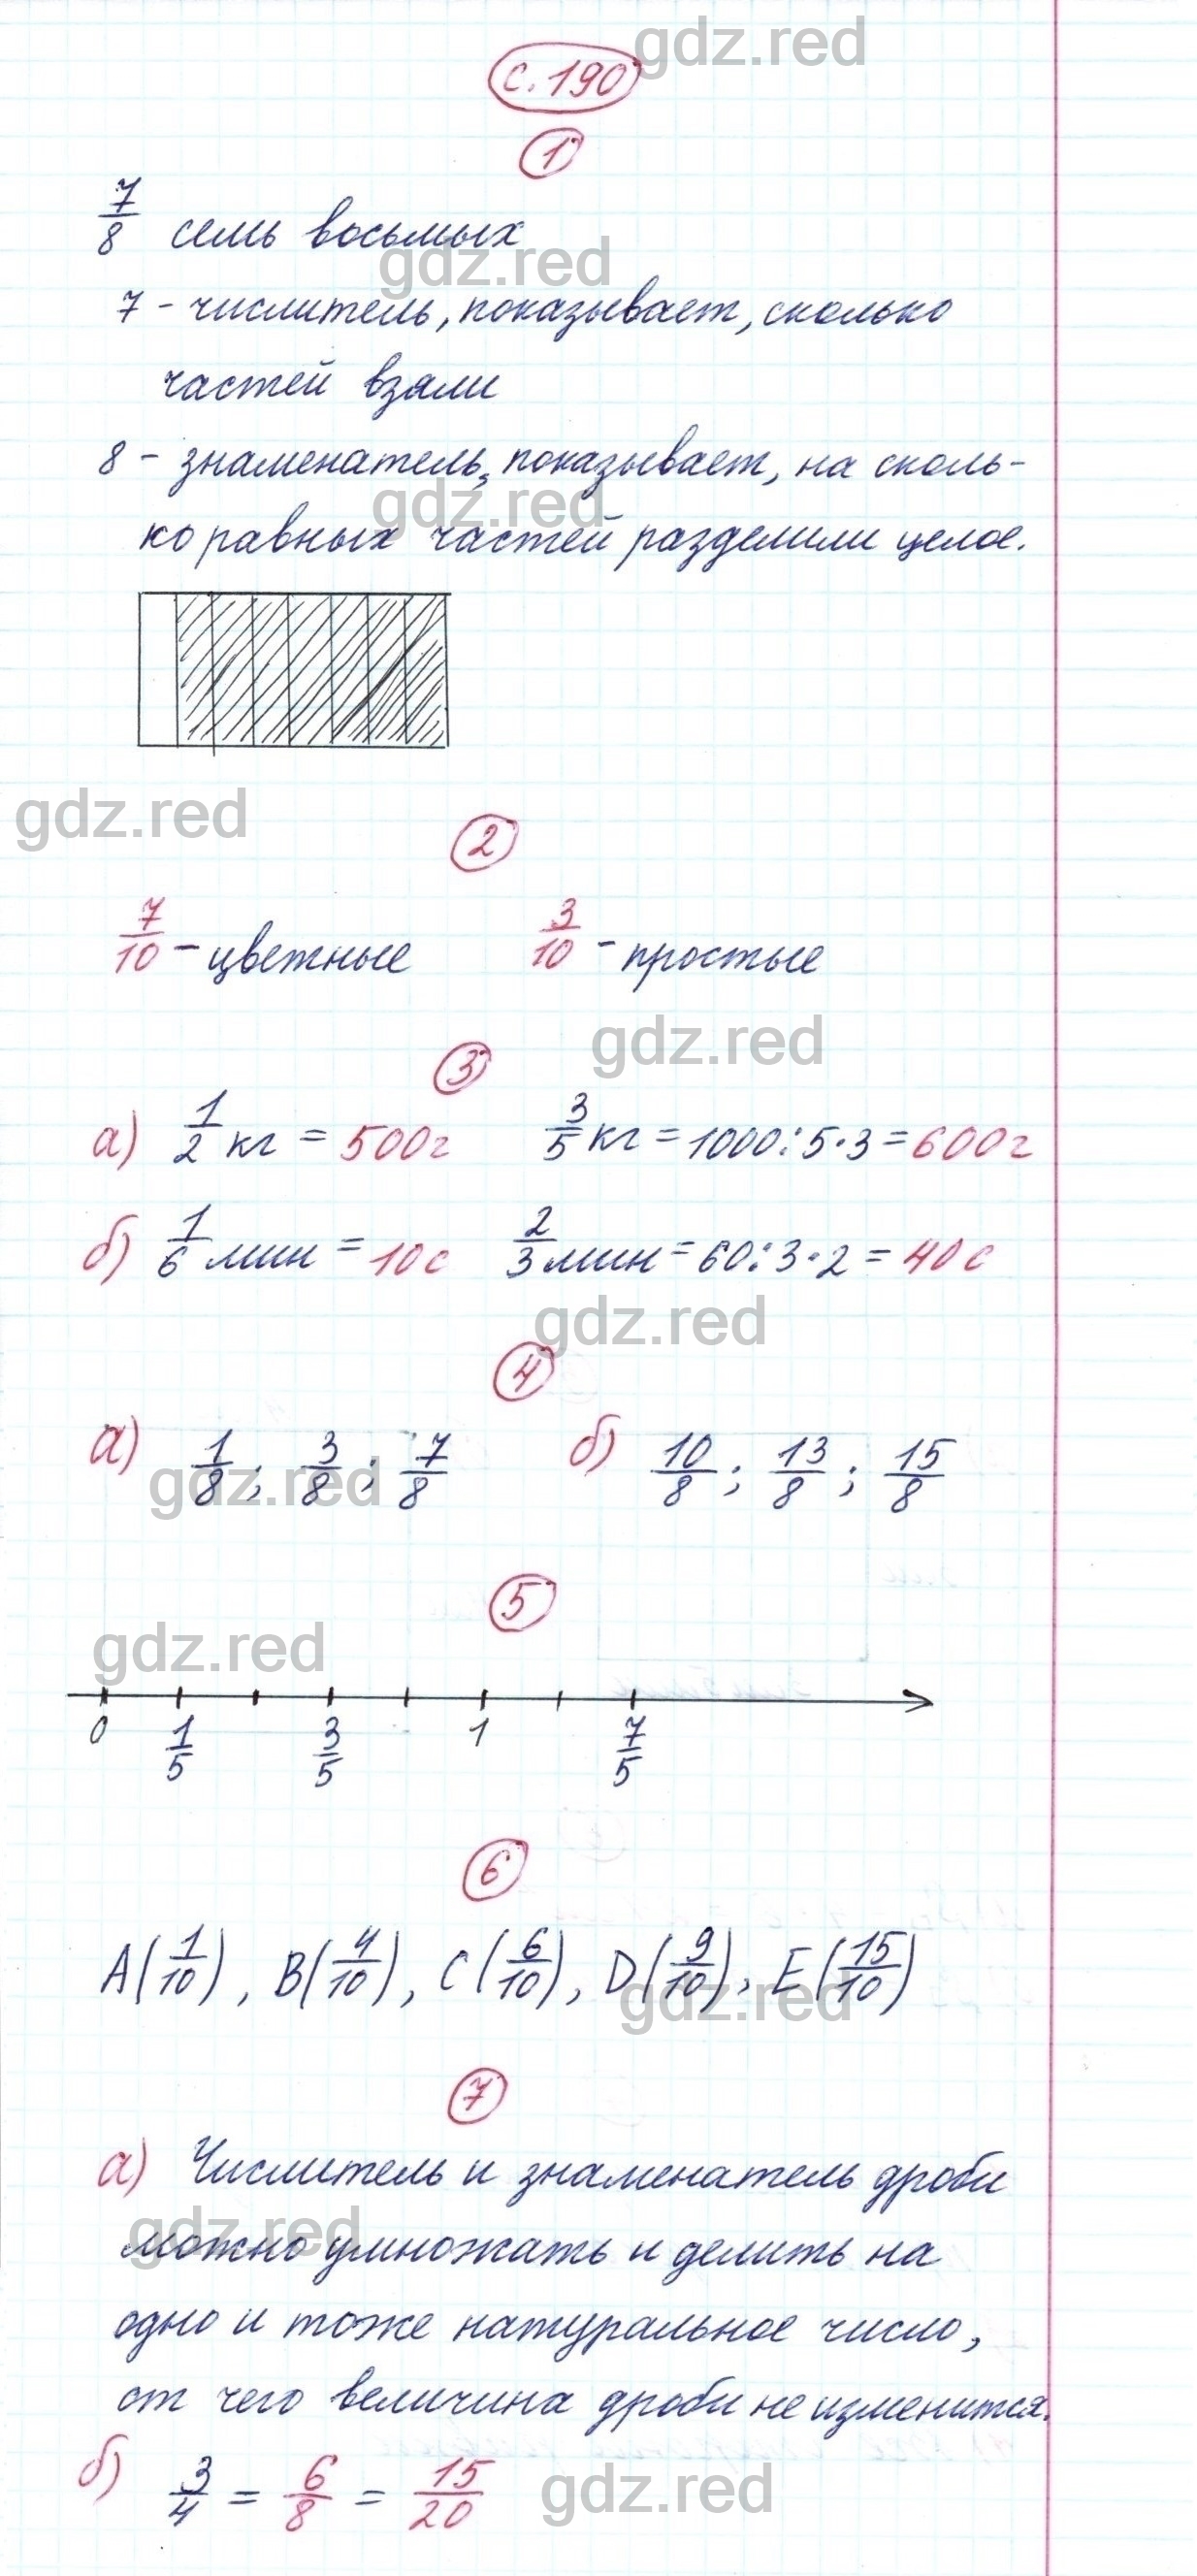 gdz.red
с. 190
1
7/8 семь восьмых
gdz.red
7 - числитель, показывает, сколько
частей взяли
8 - знаменатель, показывает, на сколь-
gdz.red
ко равных частей разделили целое.
gdz.red
2
7/10 - цветные 3/10 - простые
gdz.red
3
а) 1/2 кг = 500г 3/5 кг = 1000:5·3 = 600г
б) 1/6 мин = 10с 2/3 мин = 60:3·2 = 40с
gdz.red
4
а) 1/8; 3/8; 7/8 б) 10/8; 13/8; 15/8
gdz.red
5
gdz.red
0 1/5 3/5 1 7/5
6
A(1/10), B(4/10), C(6/10), D(9/10), E(15/10)
gdz.red
7
а) Числитель и знаменатель дроби
gdz.red
можно умножать и делить на
одно и тоже натуральное число,
от чего величина дроби не изменится.
б) 3/4 = 6/8 = 15/20
gdz.red